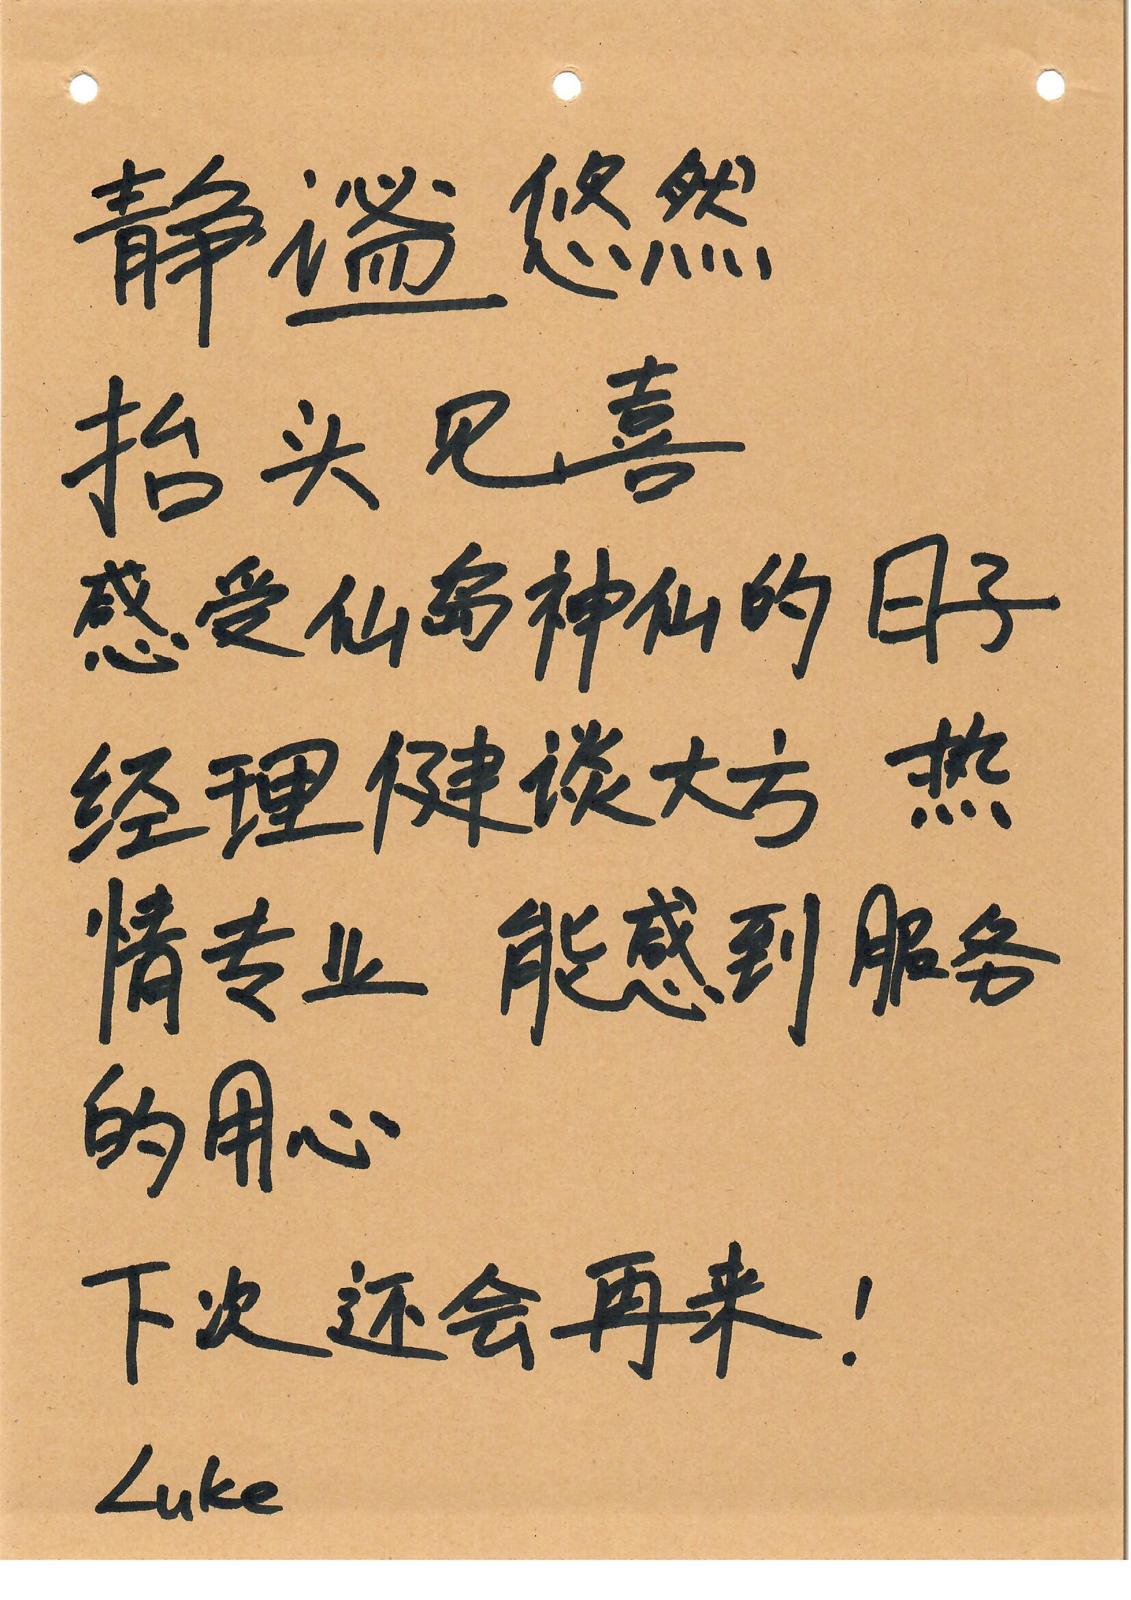 静谧悠然
抬头见喜
感受仙岛神仙的日子
经理健谈大方 热
情专业 能感到服务
的用心
下次还会再来！
Luke